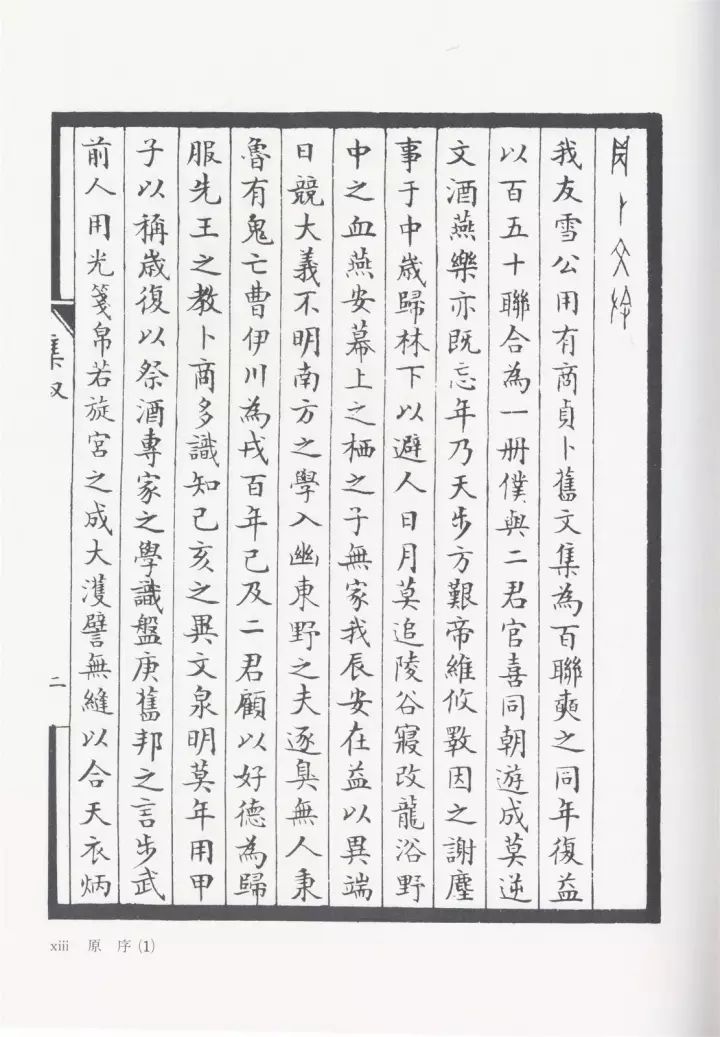 我友雪公用有商貞卜舊文集為百聯奭之同年復益
以百五十聯合為一冊僕與二君官喜同朝遊成莫逆
文酒燕樂亦既忘年乃天步方艱帝維攸斁因之謝塵
事于中歲歸林下以避人日月莫追陵谷寖改龍浴野
中之血燕安幕上之栖之子無家我辰安在益以異端
日競大義不明南方之學入幽東野之夫逐臭無人秉
魯有鬼亡曹伊川為戎百年已及二君顧以好德為歸
服先王之教卜商多識知己亥之異文泉明莫年用甲
子以稱歲復以祭酒專家之學識盤庚舊邦之言步武
前人用光箋帛若旋宮之成大濩譬無縫以合天衣炳
集
二
xiii 原 序 (1)